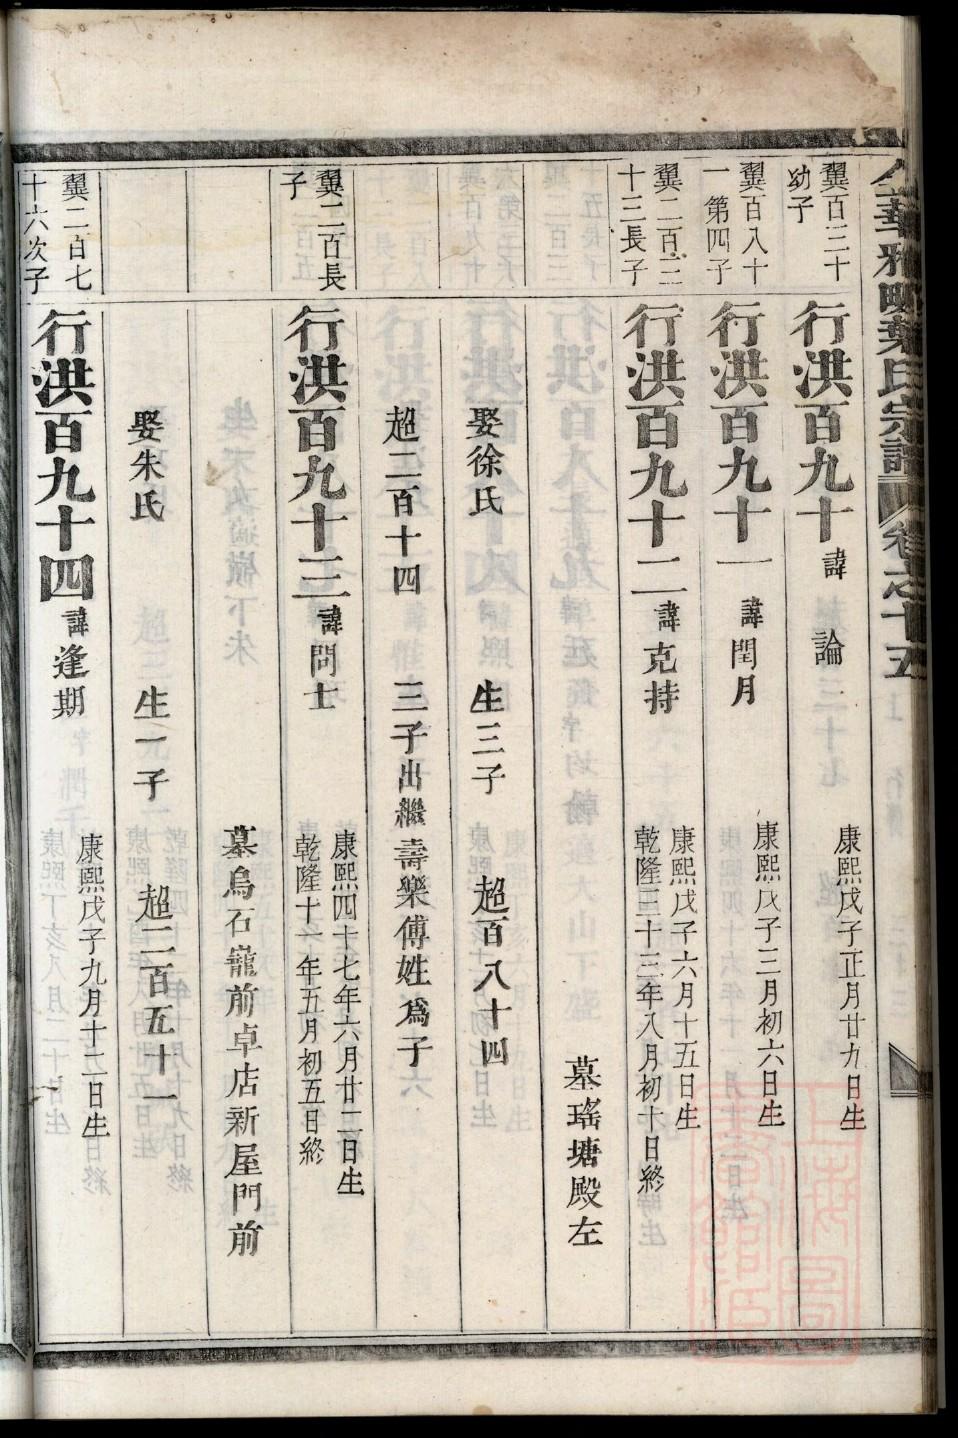 金華雅畈葉氏宗譜 卷之十五
翼百三十幼子
行洪百九十 諱 論 康熙戊子正月廿九日生
翼百八十一第四子
行洪百九十一 諱閏月 康熙戊子三月初六日生
翼二百二十三長子
行洪百九十二 諱克持 康熙戊子六月十五日生
乾隆三十三年八月初十日終
墓瑤塘殿左
娶徐氏 生三子 超百八十四
超二百十四 三子出繼壽樂傅姓爲子
翼二百長子
行洪百九十三 諱問士 康熙四十七年六月廿二日生
乾隆十一年五月初五日終
墓烏石巃前卓店新屋門前
娶朱氏 生一子 超二百五十一
翼二百七十六次子
行洪百九十四 諱逢期 康熙戊子九月十二日生
上海圖書館藏